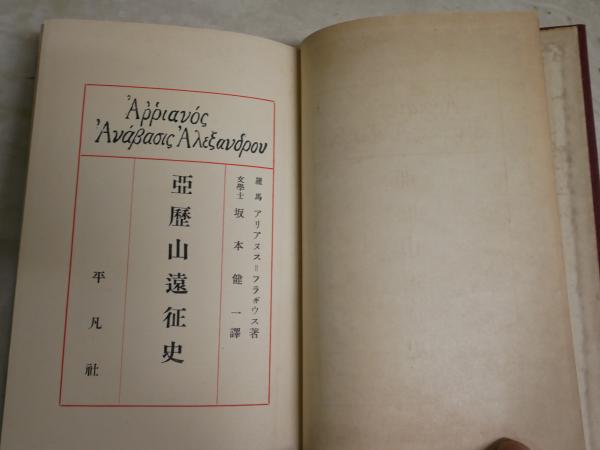 Ἀῤῥιανός
Ἀνάβασις Ἀλεξανδρου
羅馬 アリアヌス＝フラヸウス著
文學士 坂本健一譯
亞歷山遠征史
平凡社